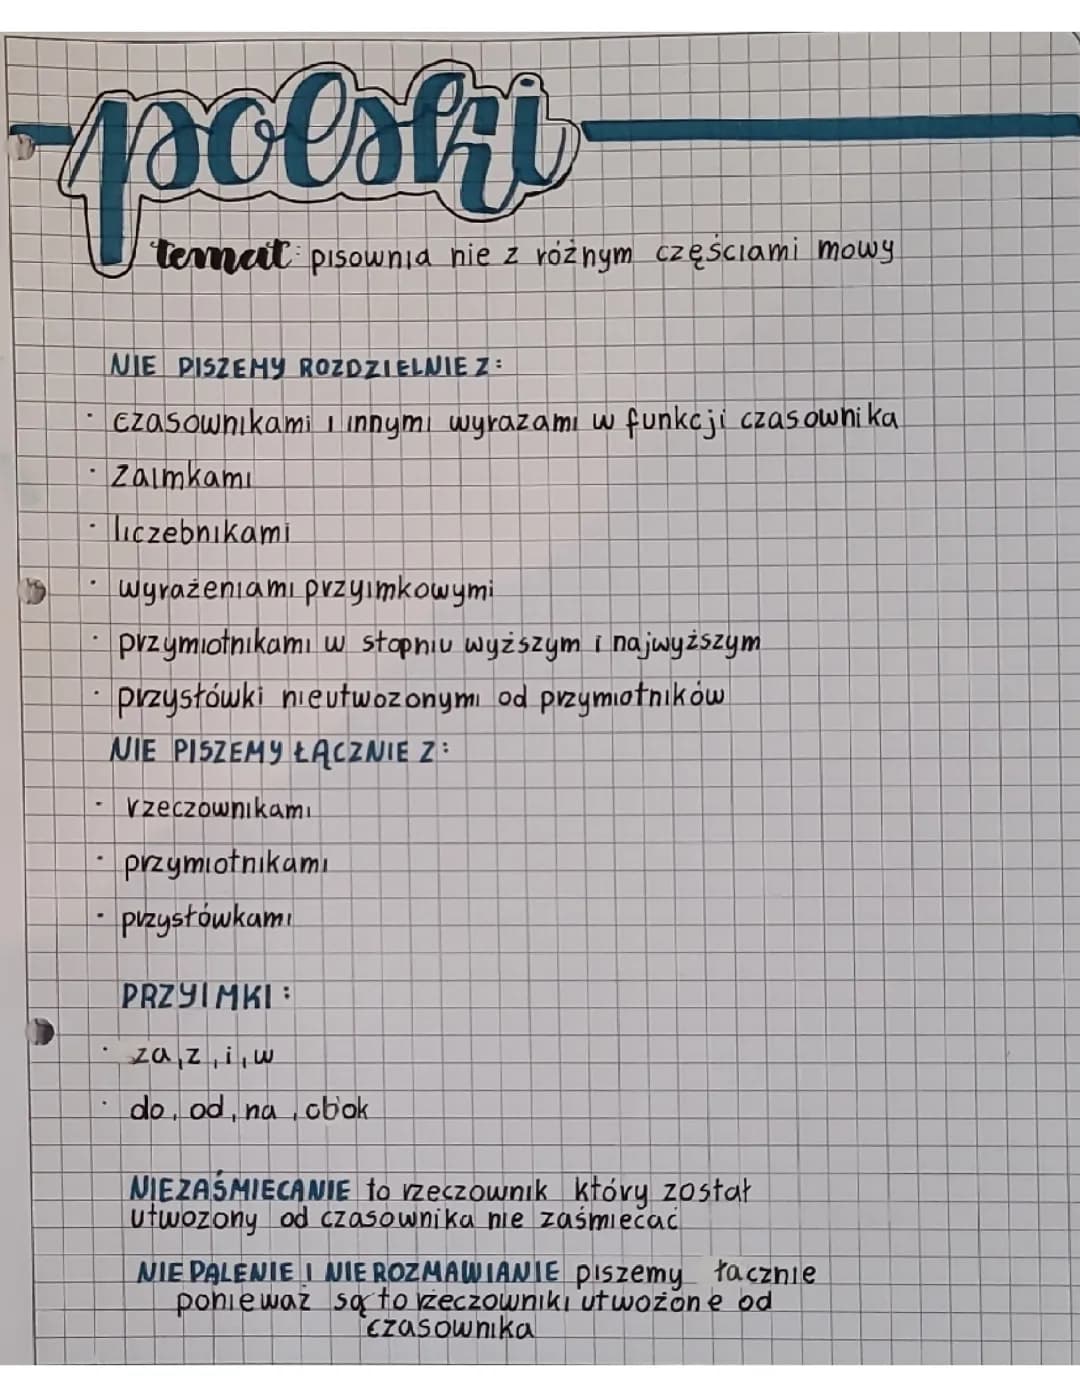 polski
temat: pisownia nie z różnym częściami mowy
NIE PISZEMY ROZDZIELNIE Z:
· czasownikami i innymi wyrazami w funkcji czasownika
· zaimkami
· liczebnikami
· wyrażeniami przyimkowymi
· przymiotnikami w stopniu wyższym i najwyższym
· przysłówki nieutwozonymi od przymiotników
NIE PISZEMY ŁĄCZNIE Z:
· rzeczownikami
· przymiotnikami
· przysłówkami
PRZYIMKI:
· za, z, i, w
· do, od, na, obok
NIEZAŚMIECANIE to rzeczownik który został
utwozony od czasownika nie zaśmiecać
NIEPALENIE I NIEROZMAWIANIE piszemy łacznie
ponieważ są to rzeczowniki utwożone od
czasownika